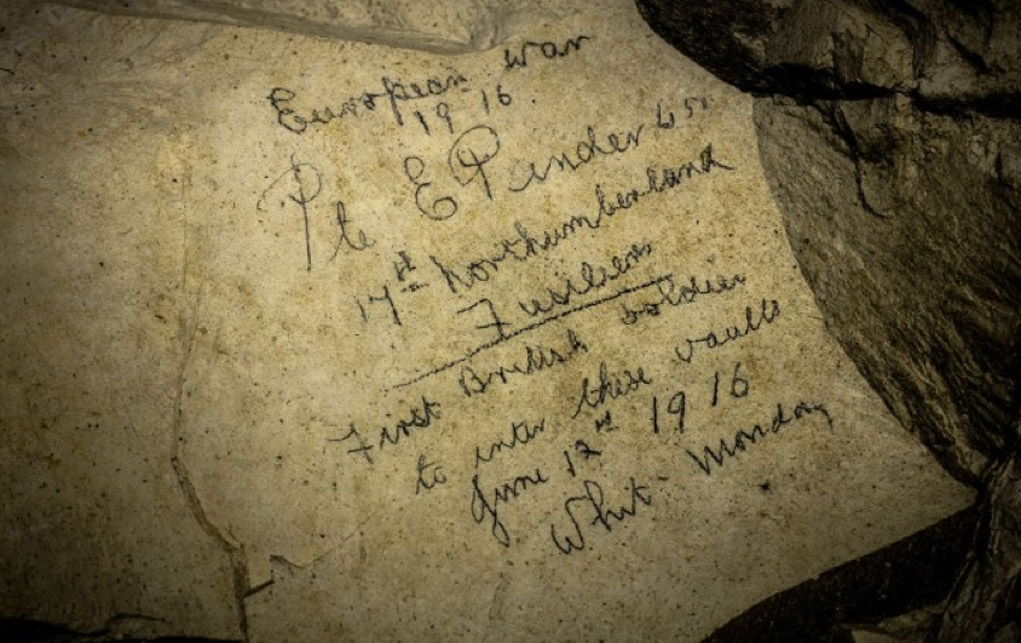 European war
19 16
Pte E Pinder
17th Northumberland
Fusiliers
First British soldier
to enter these vaults
June 12th 1916
Whit-Monday